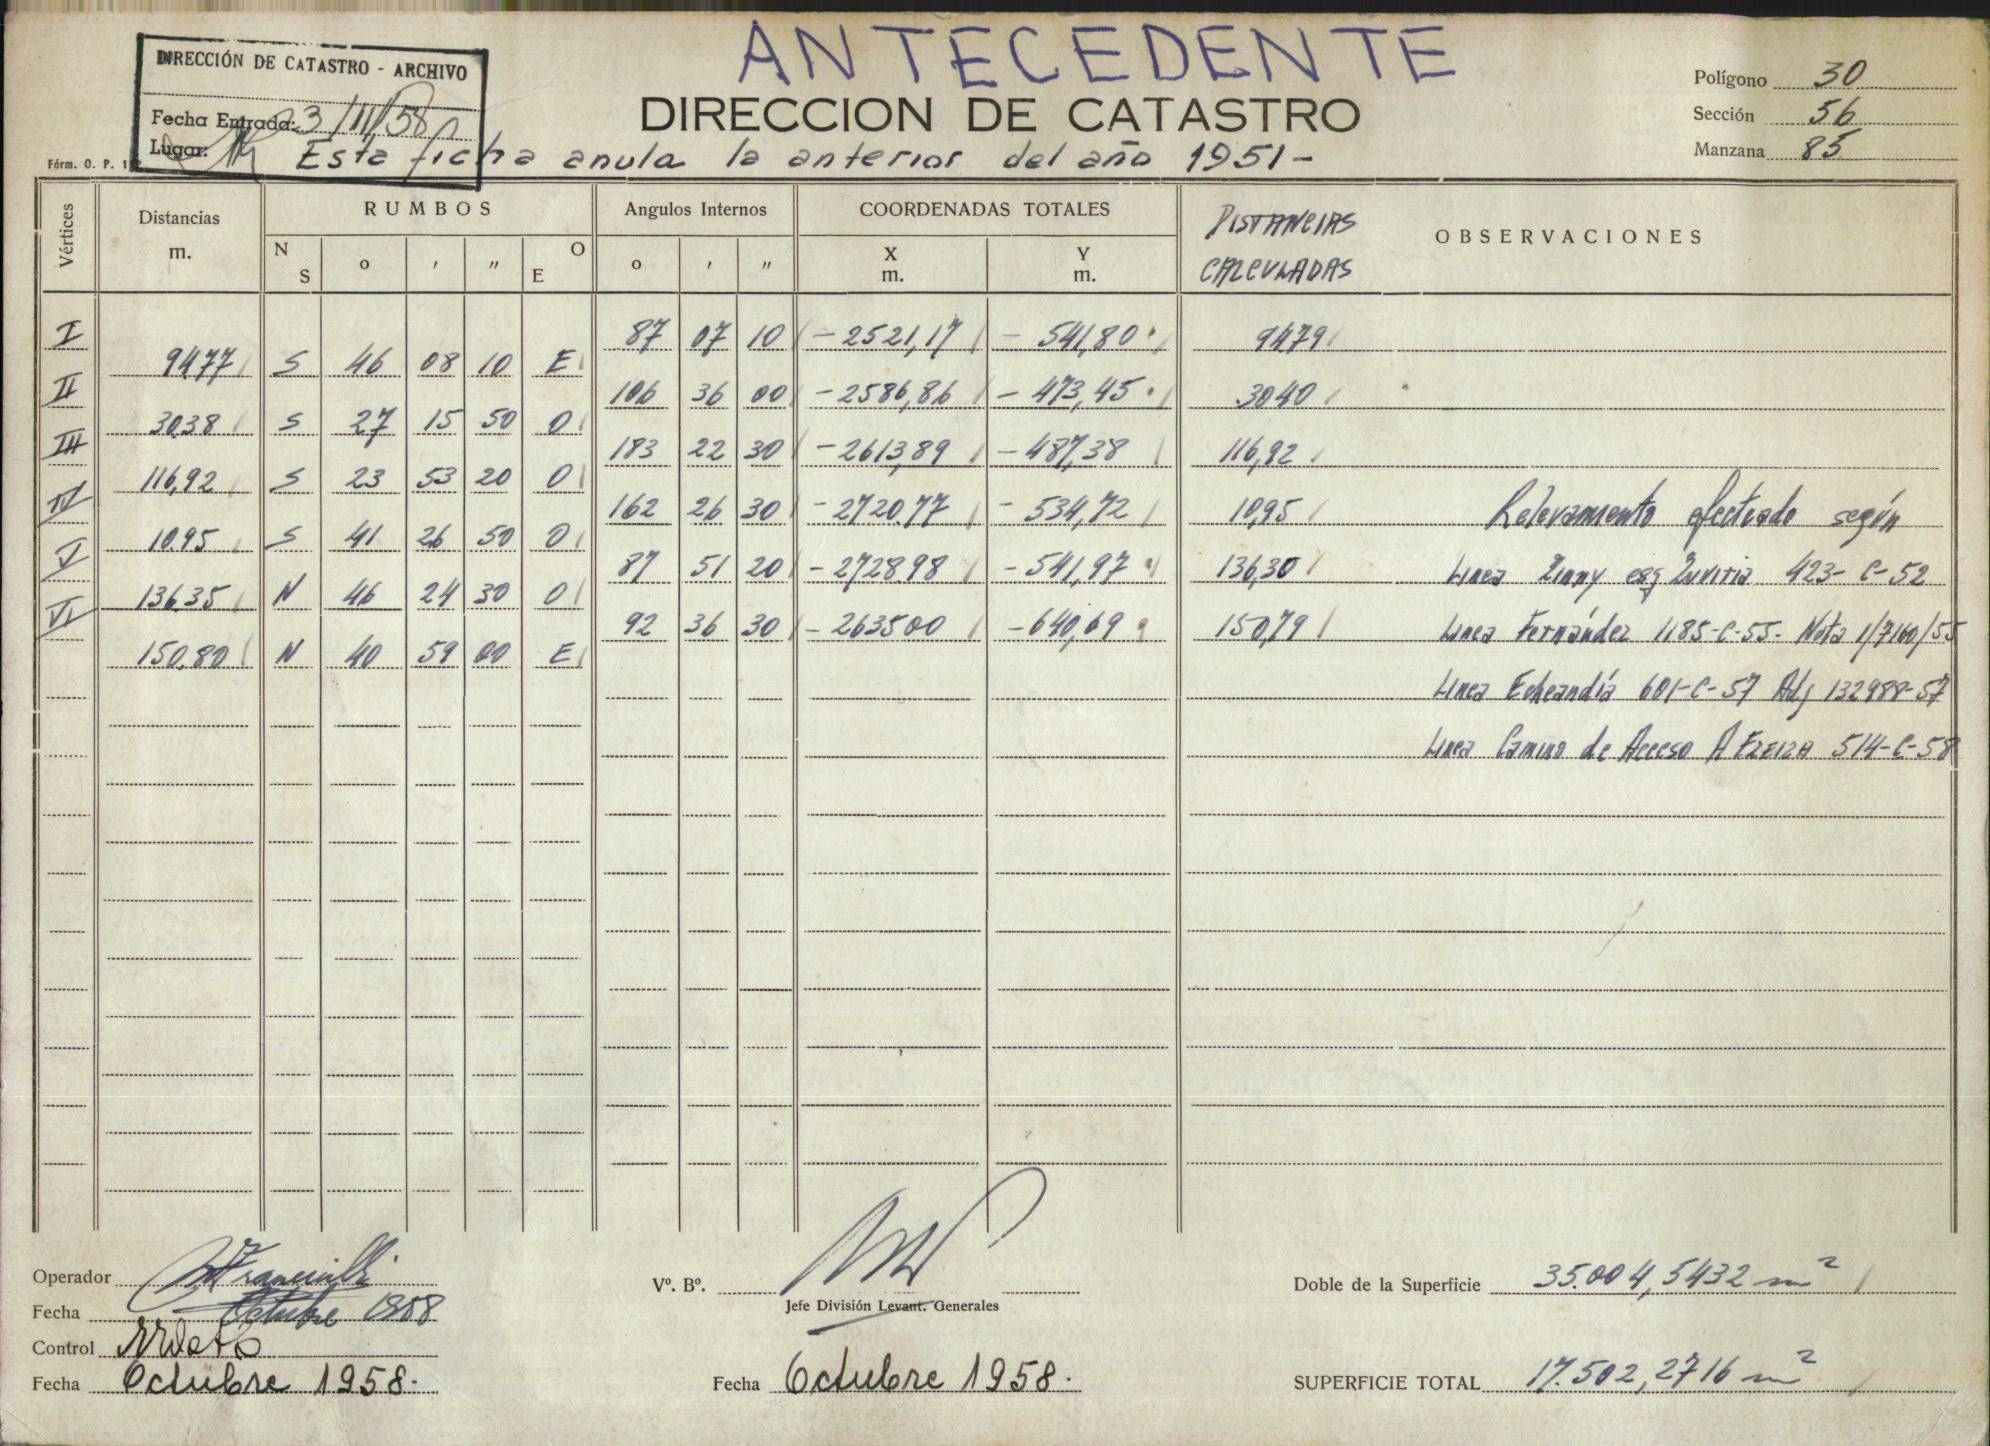 ANTECEDENTE
DIRECCIÓN DE CATASTRO - ARCHIVO
Fecha Entrada: 3/III/58
Lugar:
DIRECCION DE CATASTRO
Polígono 30
Sección 56
Manzana 85
Fórm. O. P. 1
Esta ficha anula la anterior del año 1951-
Vértices Distancias m. RUMBOS Angulos Internos COORDENADAS TOTALES DISTANCIAS CALCULADAS OBSERVACIONES
N S o ' " O E o ' " X m. Y m.
I 87 07 10 -2521,17 - 541,80 94,79
94,77 S 46 08 10 E
II 106 36 00 -2586,86 - 473,45 30,40
30,38 S 27 15 50 O
III 183 22 30 -2613,89 -487,38 116,92
116,92 S 23 53 20 O
IV 162 26 30 -2720,77 - 534,72 10,95 Relevamiento efectuado según
10,95 S 41 26 50 O
V 87 51 20 -2728,98 -541,97 136,30 Linea Zinny esq Zuviria 423-C-52
136,35 N 46 24 30 O
VI 92 36 30 -2635,00 -640,69 150,79 Linea Fernández 1185-C-55- Nota 1/7160/55
150,80 N 40 59 00 E
Linea Echeandía 601-C-57 Adj 132988-57
Linea Camino de Acceso A EZEIZA 514-C-58
Operador
Fecha Octubre 1958
Control
Fecha Octubre 1958.
Vº. Bº.
Jefe División Levant. Generales
Fecha Octubre 1958.
Doble de la Superficie 35.004,5432 m²
SUPERFICIE TOTAL 17.502,2716 m²